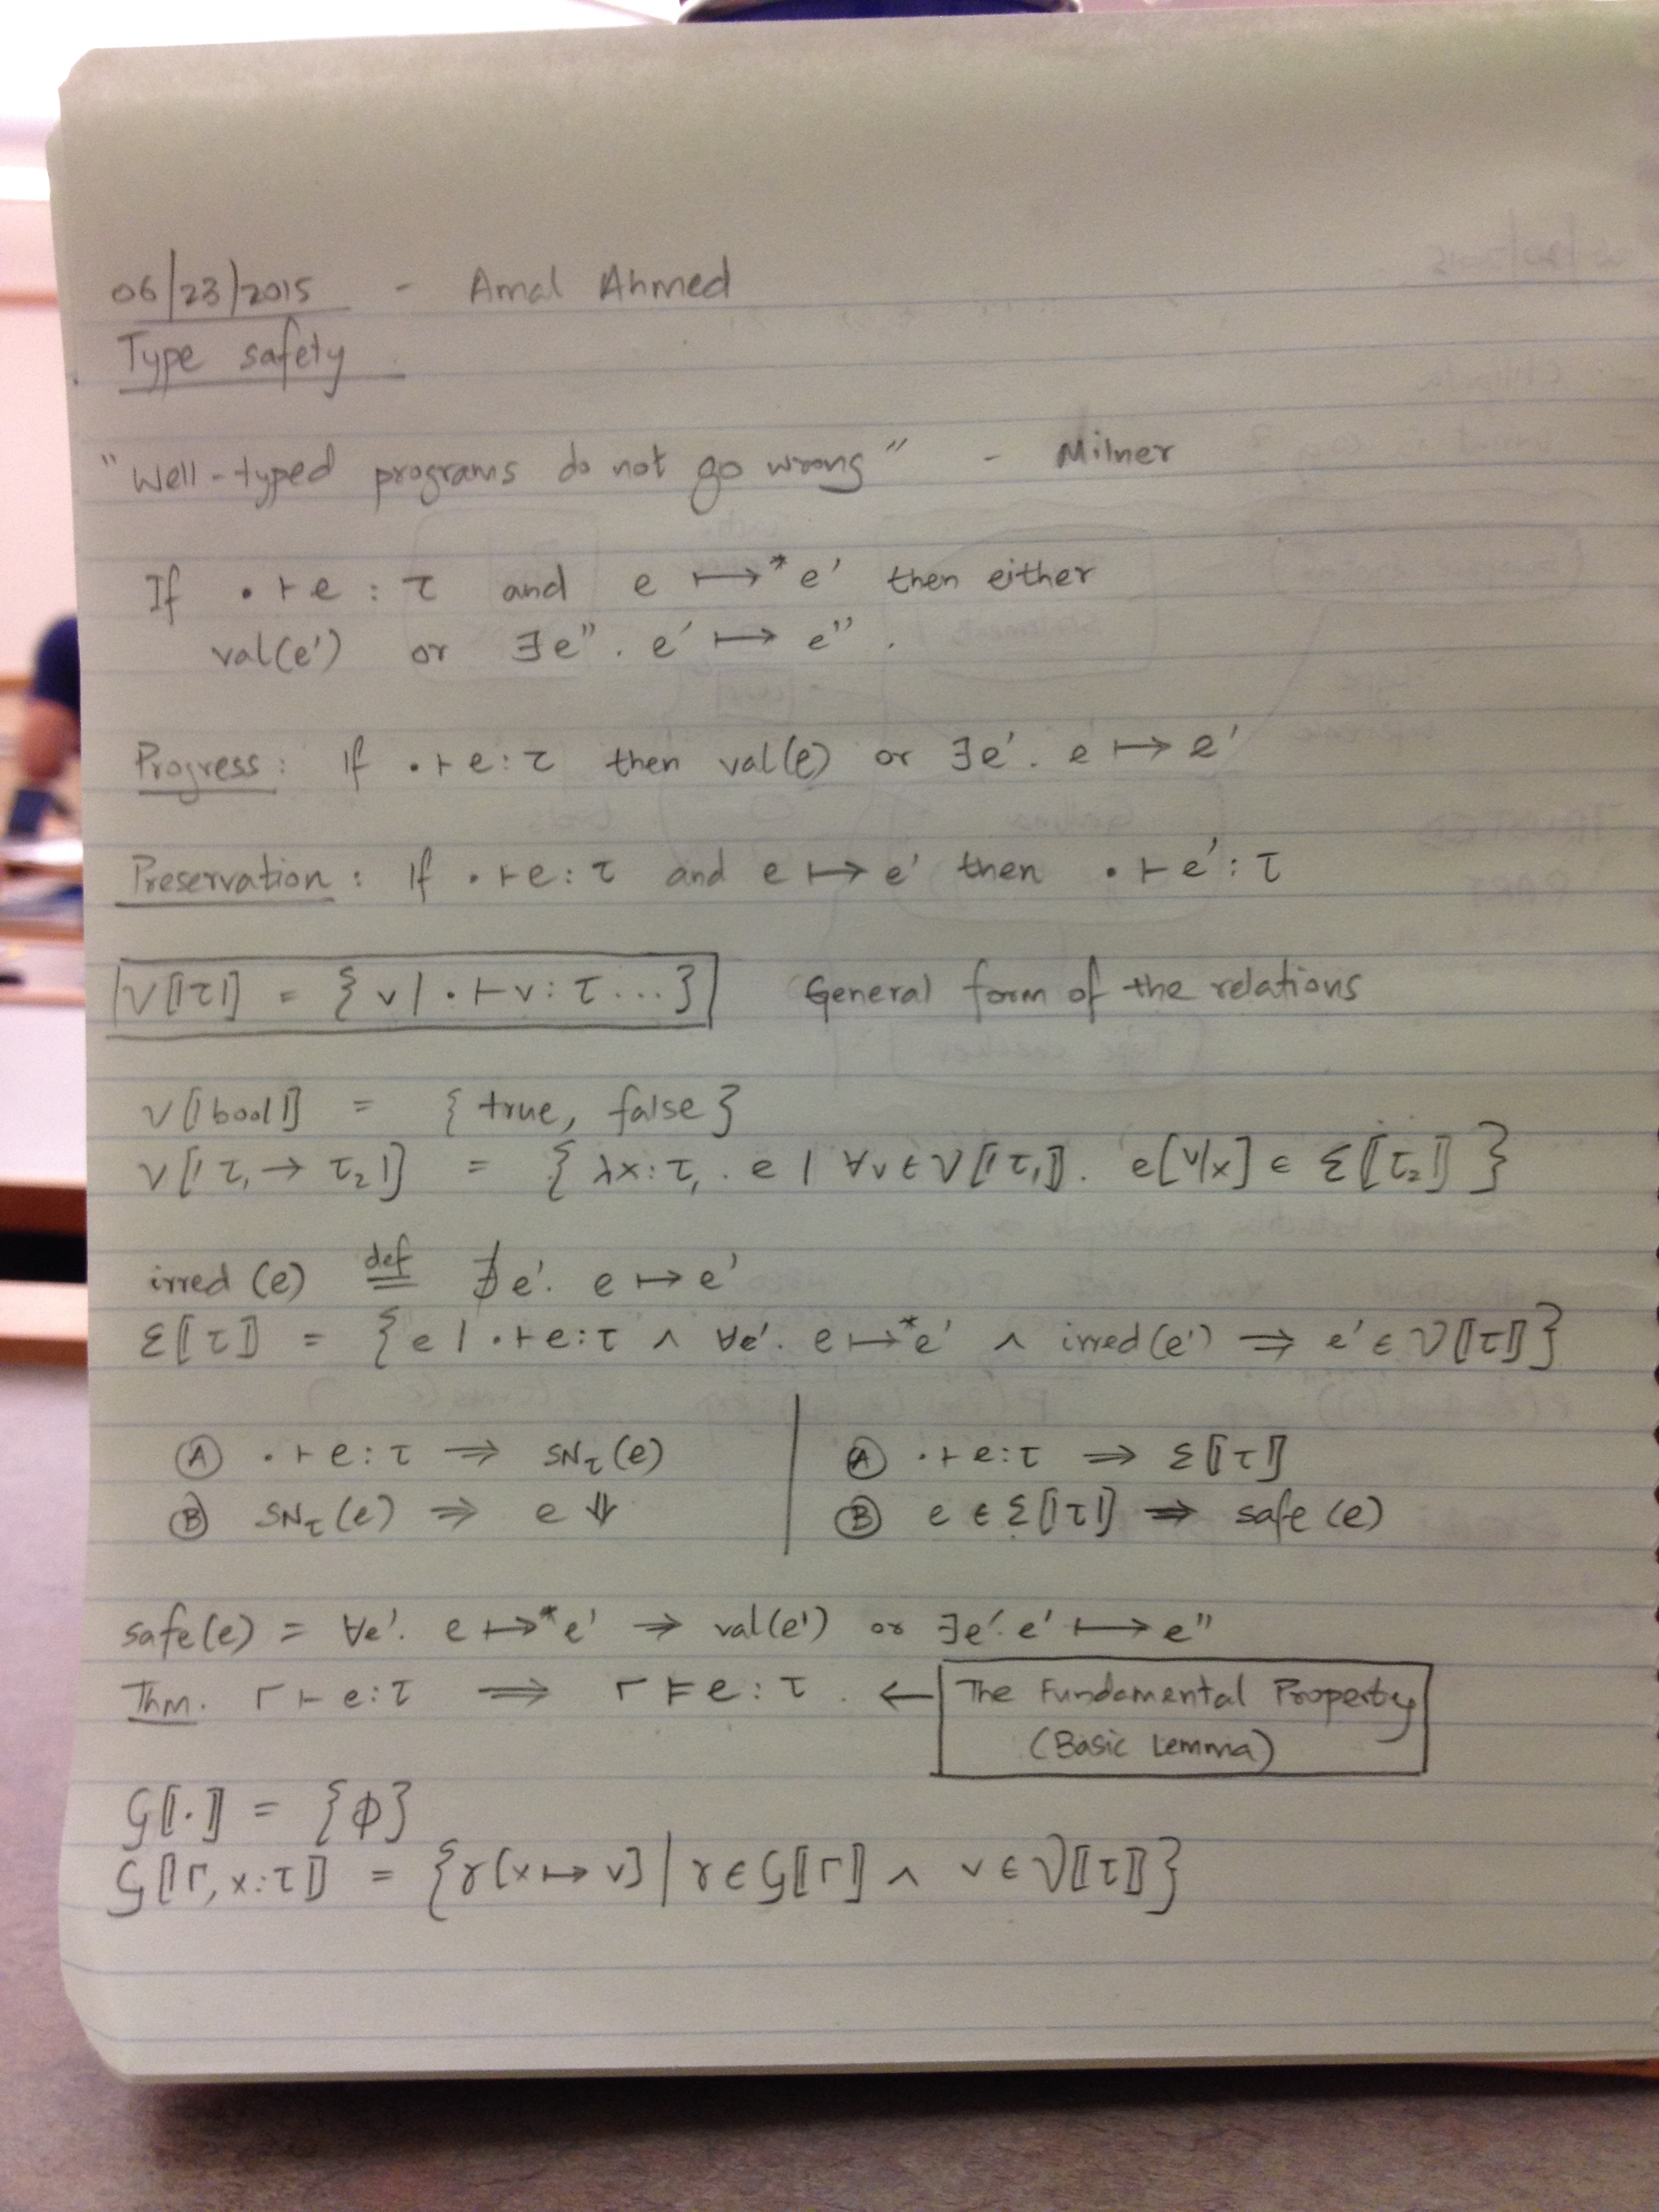 06/23/2015 - Amal Ahmed
Type safety
"Well-typed programs do not go wrong" - Milner
If · ⊢ e : τ and e ↦* e' then either
val(e') or ∃e''. e' ↦ e''.
Progress: If · ⊢ e : τ then val(e) or ∃e'. e ↦ e'
Preservation: If · ⊢ e : τ and e ↦ e' then · ⊢ e' : τ
V⟦τ⟧ = {v | · ⊢ v : τ ...} General form of the relations
V⟦bool⟧ = {true, false}
V⟦τ₁ → τ₂⟧ = {λx:τ₁. e | ∀v ∈ V⟦τ₁⟧. e[v/x] ∈ Ɛ⟦τ₂⟧}
irred(e) def= ∄e'. e ↦ e'
Ɛ⟦τ⟧ = {e | · ⊢ e : τ ∧ ∀e'. e ↦* e' ∧ irred(e') ⇒ e' ∈ V⟦τ⟧}
Ⓐ · ⊢ e : τ ⇒ SN_τ(e) | Ⓐ · ⊢ e : τ ⇒ Ɛ⟦τ⟧
Ⓑ SN_τ(e) ⇒ e ⇓ | Ⓑ e ∈ Ɛ⟦τ⟧ ⇒ safe(e)
safe(e) = ∀e'. e ↦* e' ⇒ val(e') or ∃e'. e' ↦ e''
Thm. Γ ⊢ e : τ ⟹ Γ ⊨ e : τ. ← The Fundamental Property
(Basic Lemma)
G⟦·⟧ = {φ}
G⟦Γ, x:τ⟧ = {γ[x ↦ v] | γ ∈ G⟦Γ⟧ ∧ v ∈ V⟦τ⟧}